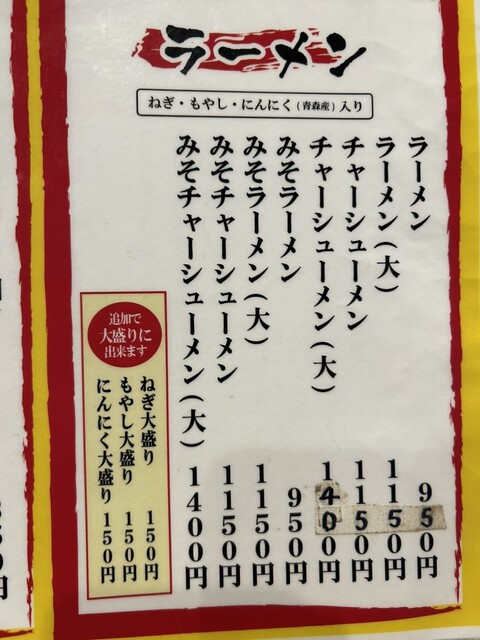 ラーメン
ねぎ・もやし・にんにく(青森産)入り
ラーメン 950円
ラーメン(大) 1150円
チャーシューメン 1150円
チャーシューメン(大) 1400円
みそラーメン 950円
みそラーメン(大) 1150円
みそチャーシューメン 1150円
みそチャーシューメン(大) 1400円
追加で
大盛りに
出来ます
ねぎ大盛り 150円
もやし大盛り 150円
にんにく大盛り 150円